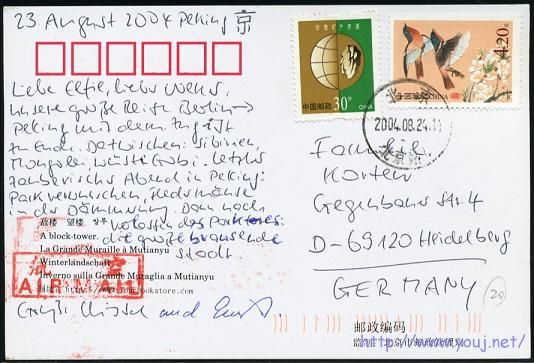 23 August 2004 Peking 京
Liebe Elfie, lieber
unsere große Reise Berlin →
Peking mit dem Zug ist
zu Ende. Dazwischen: Sibirien,
Mongolei, Wüste Gobi. Letzter
zauberischer Abend in Peking:
Park Fledermäuse
in der Dämmerung. Dann noch
vor des Parktores:
die große brausende
Stadt
敌楼 望楼
A block-tower.
La Grande Muraille à Mutianyu
Winterlandschaft
Inverno sulla Grande Muraglia a Mutianyu
AIR MAIL
und
中国邮政 30分 CHINA
4.20元
CHINA
北京
2004.08.24.11
北京
Familie
Korten
Gegenbaurstr. 4
D-69120 Heidelberg
GERMANY
20
邮政编码
http://www.youj.net/